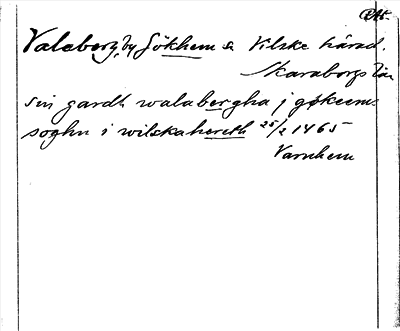 RAp.
Valaberg, by Gökhem sn Vilske härad.
Skaraborgs län
sin gardh walabergha j gøkeem
soghn i wilskahereth 25/2 1465
Varnhem